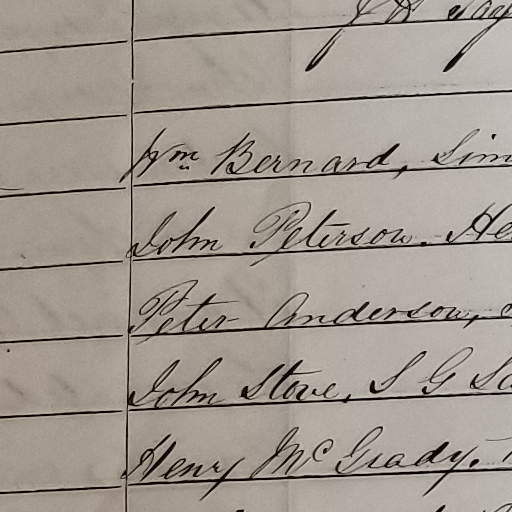 Wm Bernard, Sim
John Peterson. He
Peter Anderson,
John Stove, S G Sa
Henry McGrady.